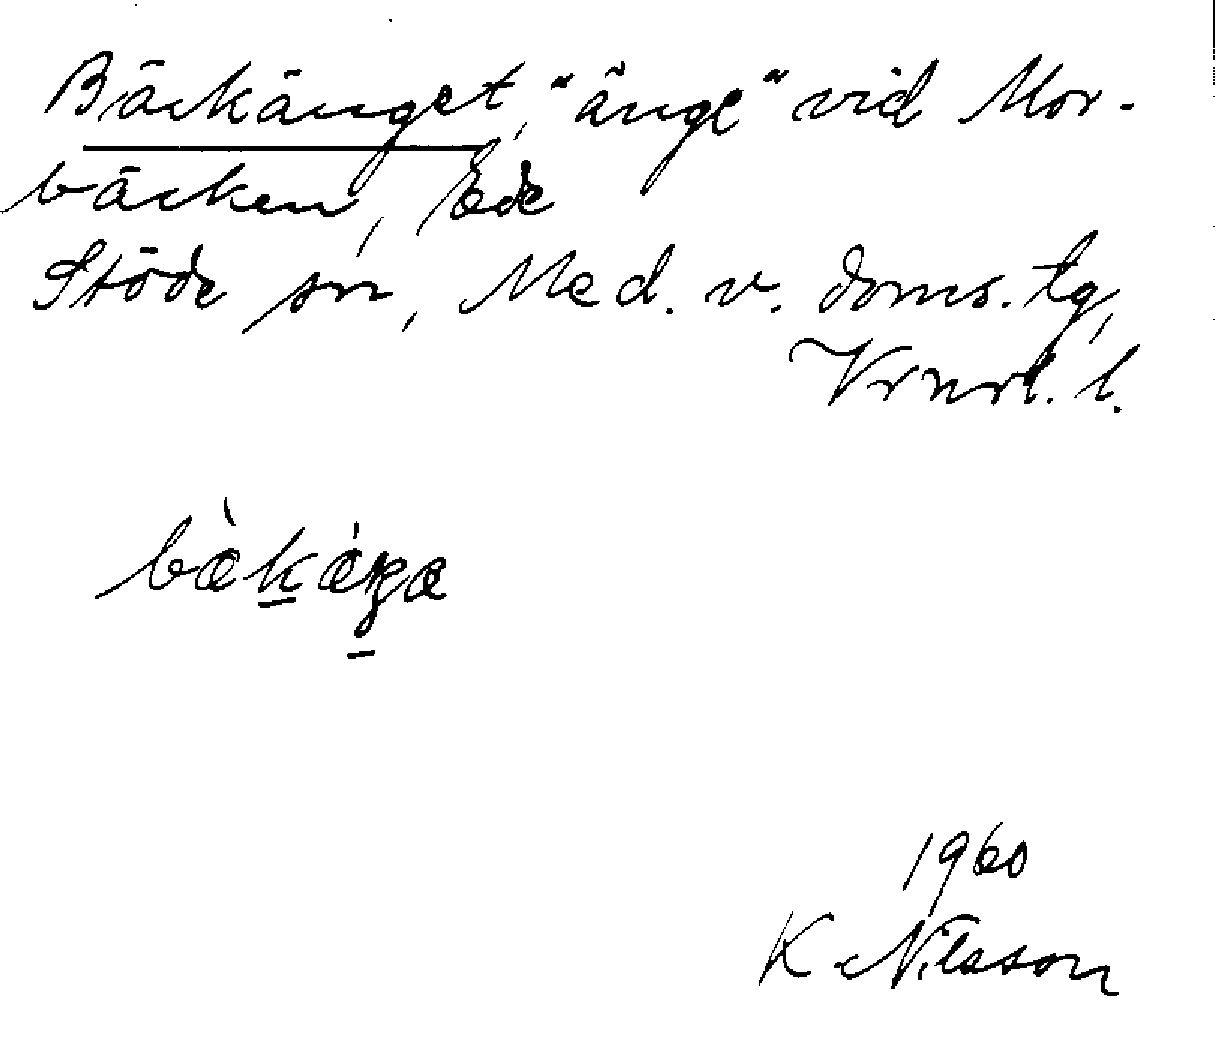 Bäckänget, "änge" vid Mor-
bäcken, Ede
Stöde sn, Med. v. doms. tg,
Vrnrl. l.
bæ̀kæ̀ŋæ
1960
K. Nilsson